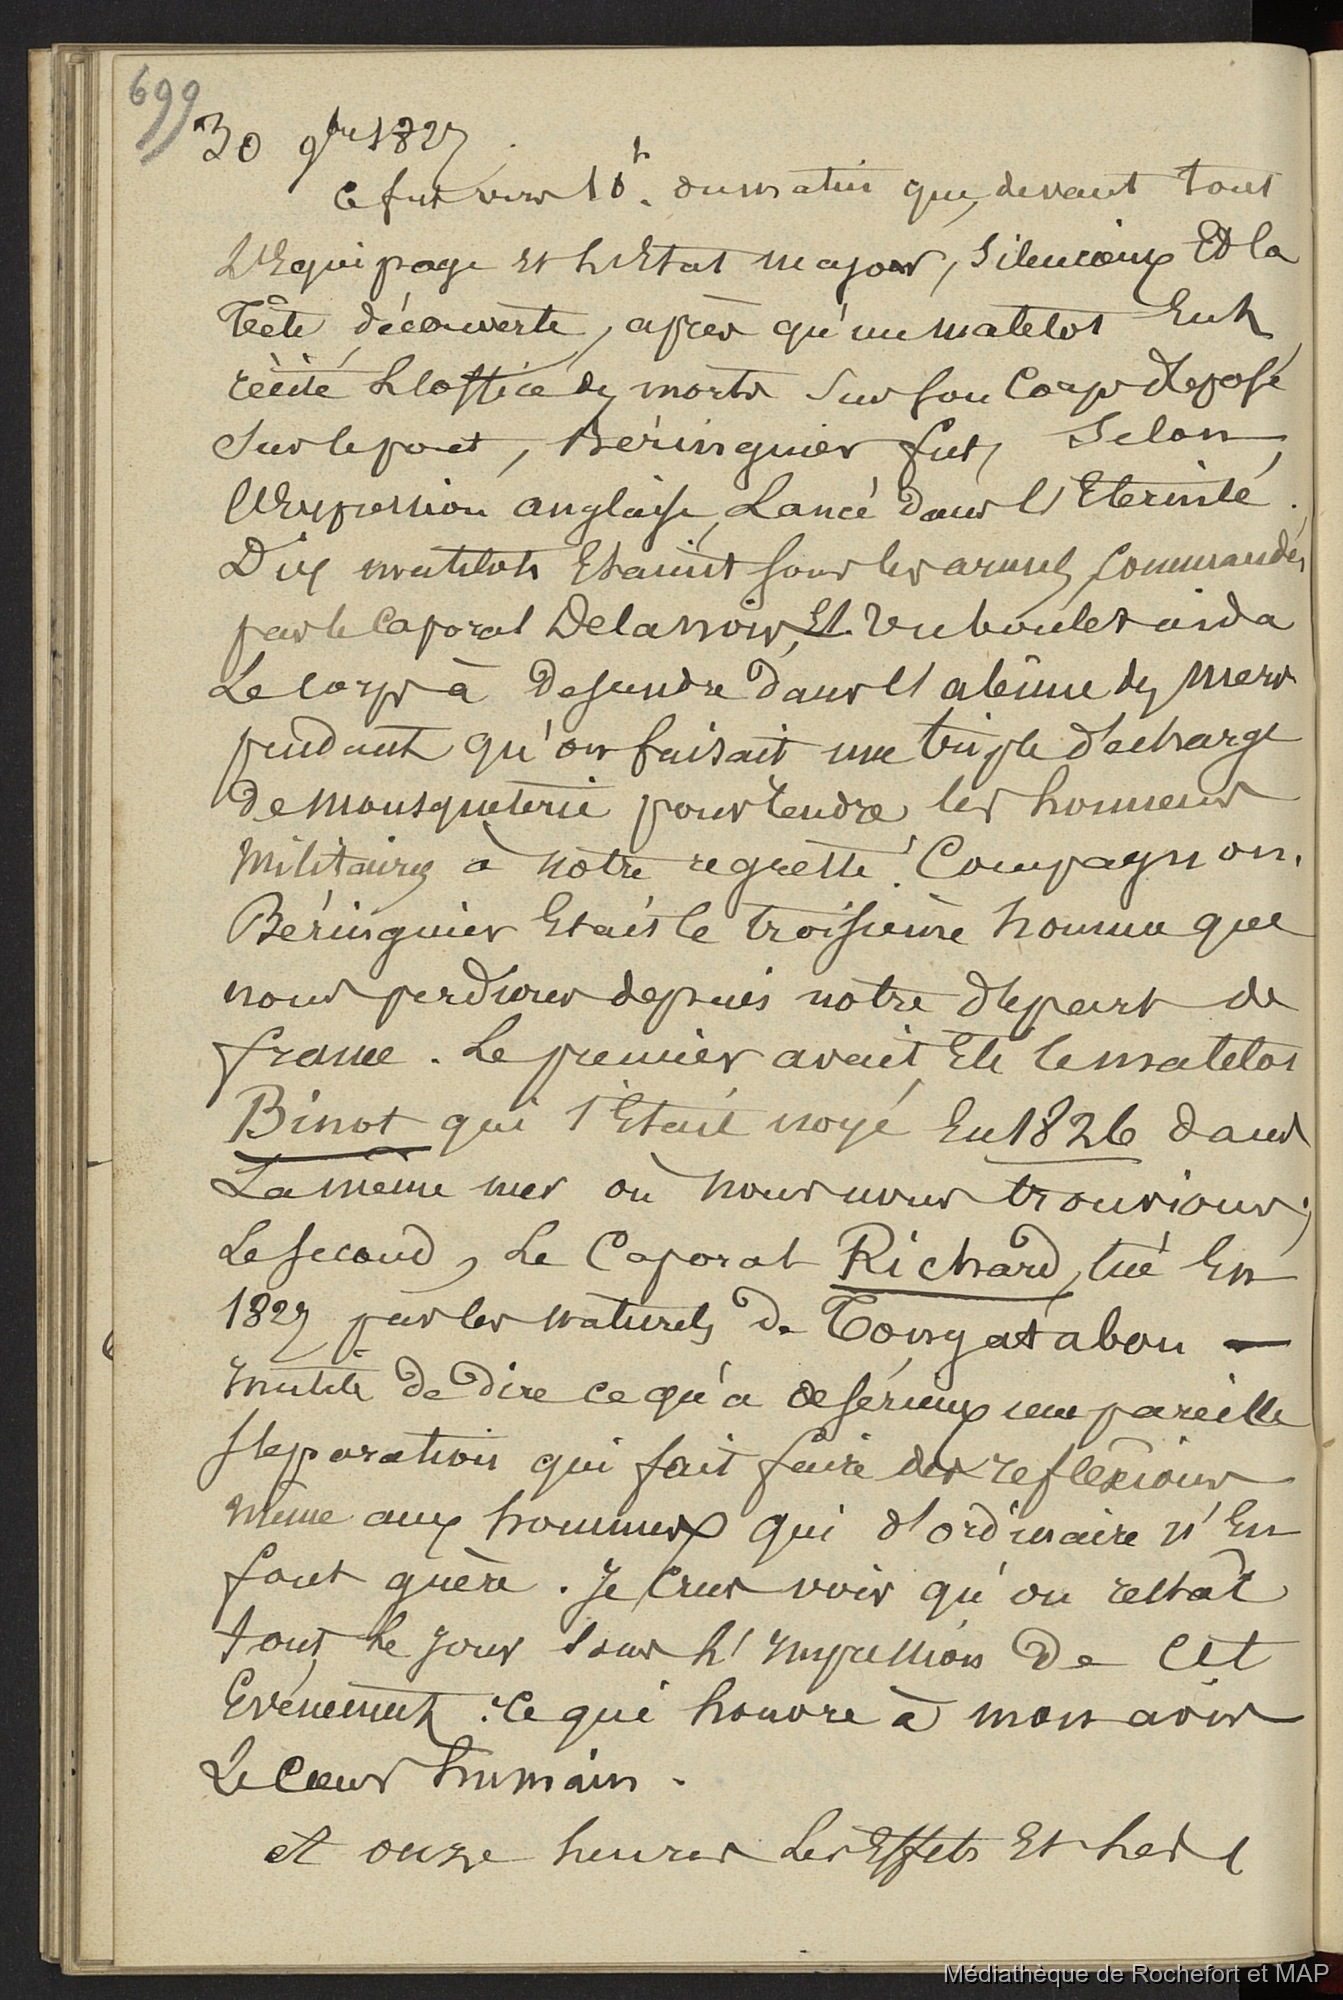 699
30 9bre 1827
Ce fut vers 10h. du matin que, devant tout
L'Equipage et L'Etat major, silencieux Et la
Tête découverte, après qu'un matelot Eut
récité L'office des morts sur son Corps déposé
sur le pont, Béringuier fut, Selon
L'Expression anglaise, Lancé dans l'Eternité.
Dix matelots Etaient sous les armes, Commandés
par le Caporal Delanoix, Et un boulet aida
Le corps à descendre dans l'abîme des mers
pendant qu'on faisait une triple décharge
de mousqueterie pour rendre les honneurs
Militaires à notre regretté Compagnon.
Béringuier Etait le troisième homme que
nous perdions depuis notre départ de
france. Le premier avait Eté le matelot
Binot qui s'Etait noyé En 1826 dans
La même mer où nous nous trouvions;
Le second, Le Caporal Richard, tué En
1827 par les naturels de Tongatabou —
Inutile de dire ce qu'a de sérieux une pareille
séparation qui fait faire des réflexions
même aux hommes qui d'ordinaire n'En
font guère. Je Crus voir qu'on restât
tout le jour sous L'Impression de Cet
Evénement: Ce qui honore à mon avis
Le Cœur humain.
à onze heures Les Effets Et hardes
Médiathèque de Rochefort et MAP